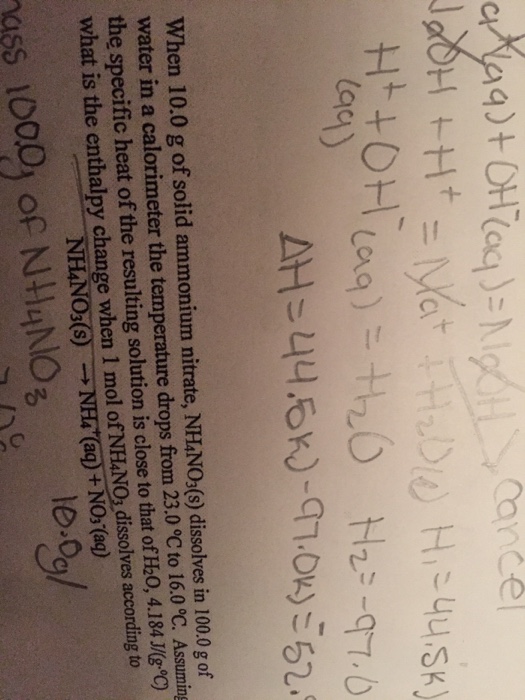 (aq) + OH⁻(aq) = NaOH > cancel
NaOH + H⁺ = Na⁺ + H₂O(l) H₁ = 44.5K
H⁺ + OH⁻(aq) = H₂O H₂ = -97.0
(aq)
ΔH = 44.5KJ - 97.0KJ = 52.
When 10.0 g of solid ammonium nitrate, NH₄NO₃(s) dissolves in 100.0 g of
water in a calorimeter the temperature drops from 23.0 °C to 16.0 °C. Assuming
the specific heat of the resulting solution is close to that of H₂O, 4.184 J/(g·°C)
what is the enthalpy change when 1 mol of NH₄NO₃ dissolves according to
NH₄NO₃(s) → NH₄⁺(aq) + NO₃⁻(aq)
mass 100.0g of NH₄NO₃ 10.0g/